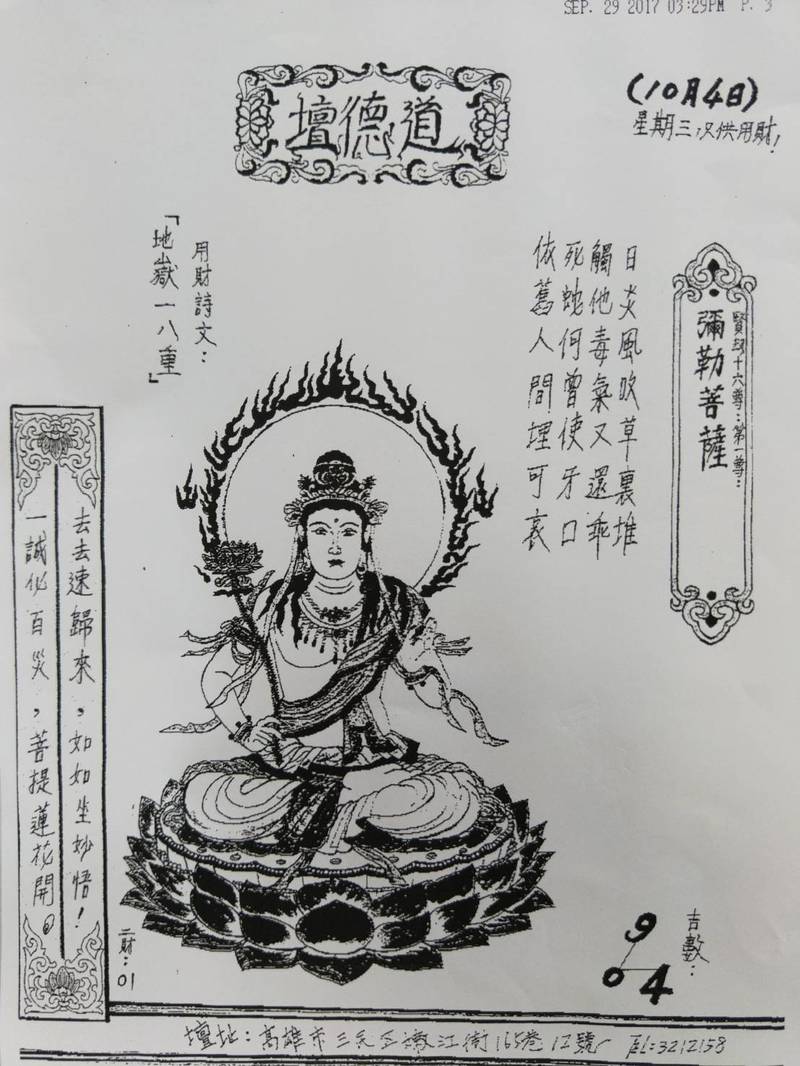 SEP. 29 2017 03:29PM P. 3
道德壇
(10月4日)
星期三次供用財!
賢劫十六尊:第一尊:
彌勒菩薩
日炎風吹草裏堆
觸他毒氣又還乖
死蛇何曾使牙口
依舊人間埋可哀
用財詩文:
「地嶽一八重」
去去速歸來,如如坐妙悟!
一誠化百災,菩提蓮花開。
二財:01
吉數:
9
0 4
壇地:高雄市三民区嫩江街165巷12號 TEL=3212158